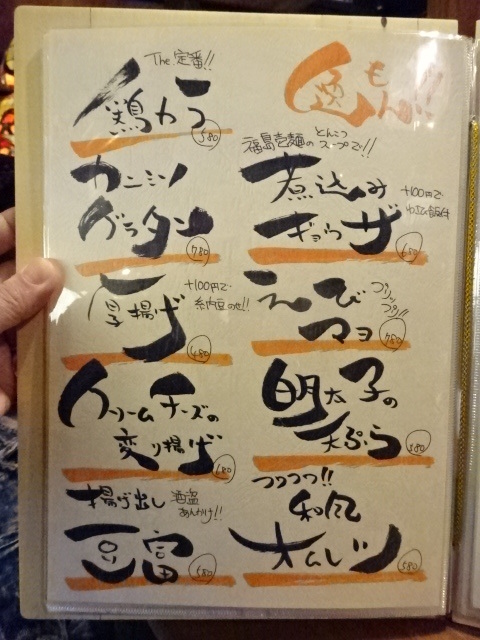 The 定番!!
鶏から
580
カニミソ
グラタン
780
厚揚げ
+100円で
納豆のせ!!
480
クリームチーズの
変り揚げ
680
揚げ出し
酒盗
あんかけ!!
豆富
580
もんが!!
福島壱麺の
とんこつ
スープで!!
煮込み
ギョウザ
+100円で
680
えび
マヨ
プリップリ!!
780
明太子の
天ぷら
580
つぁつぁつ!!
和風
オムレツ
580